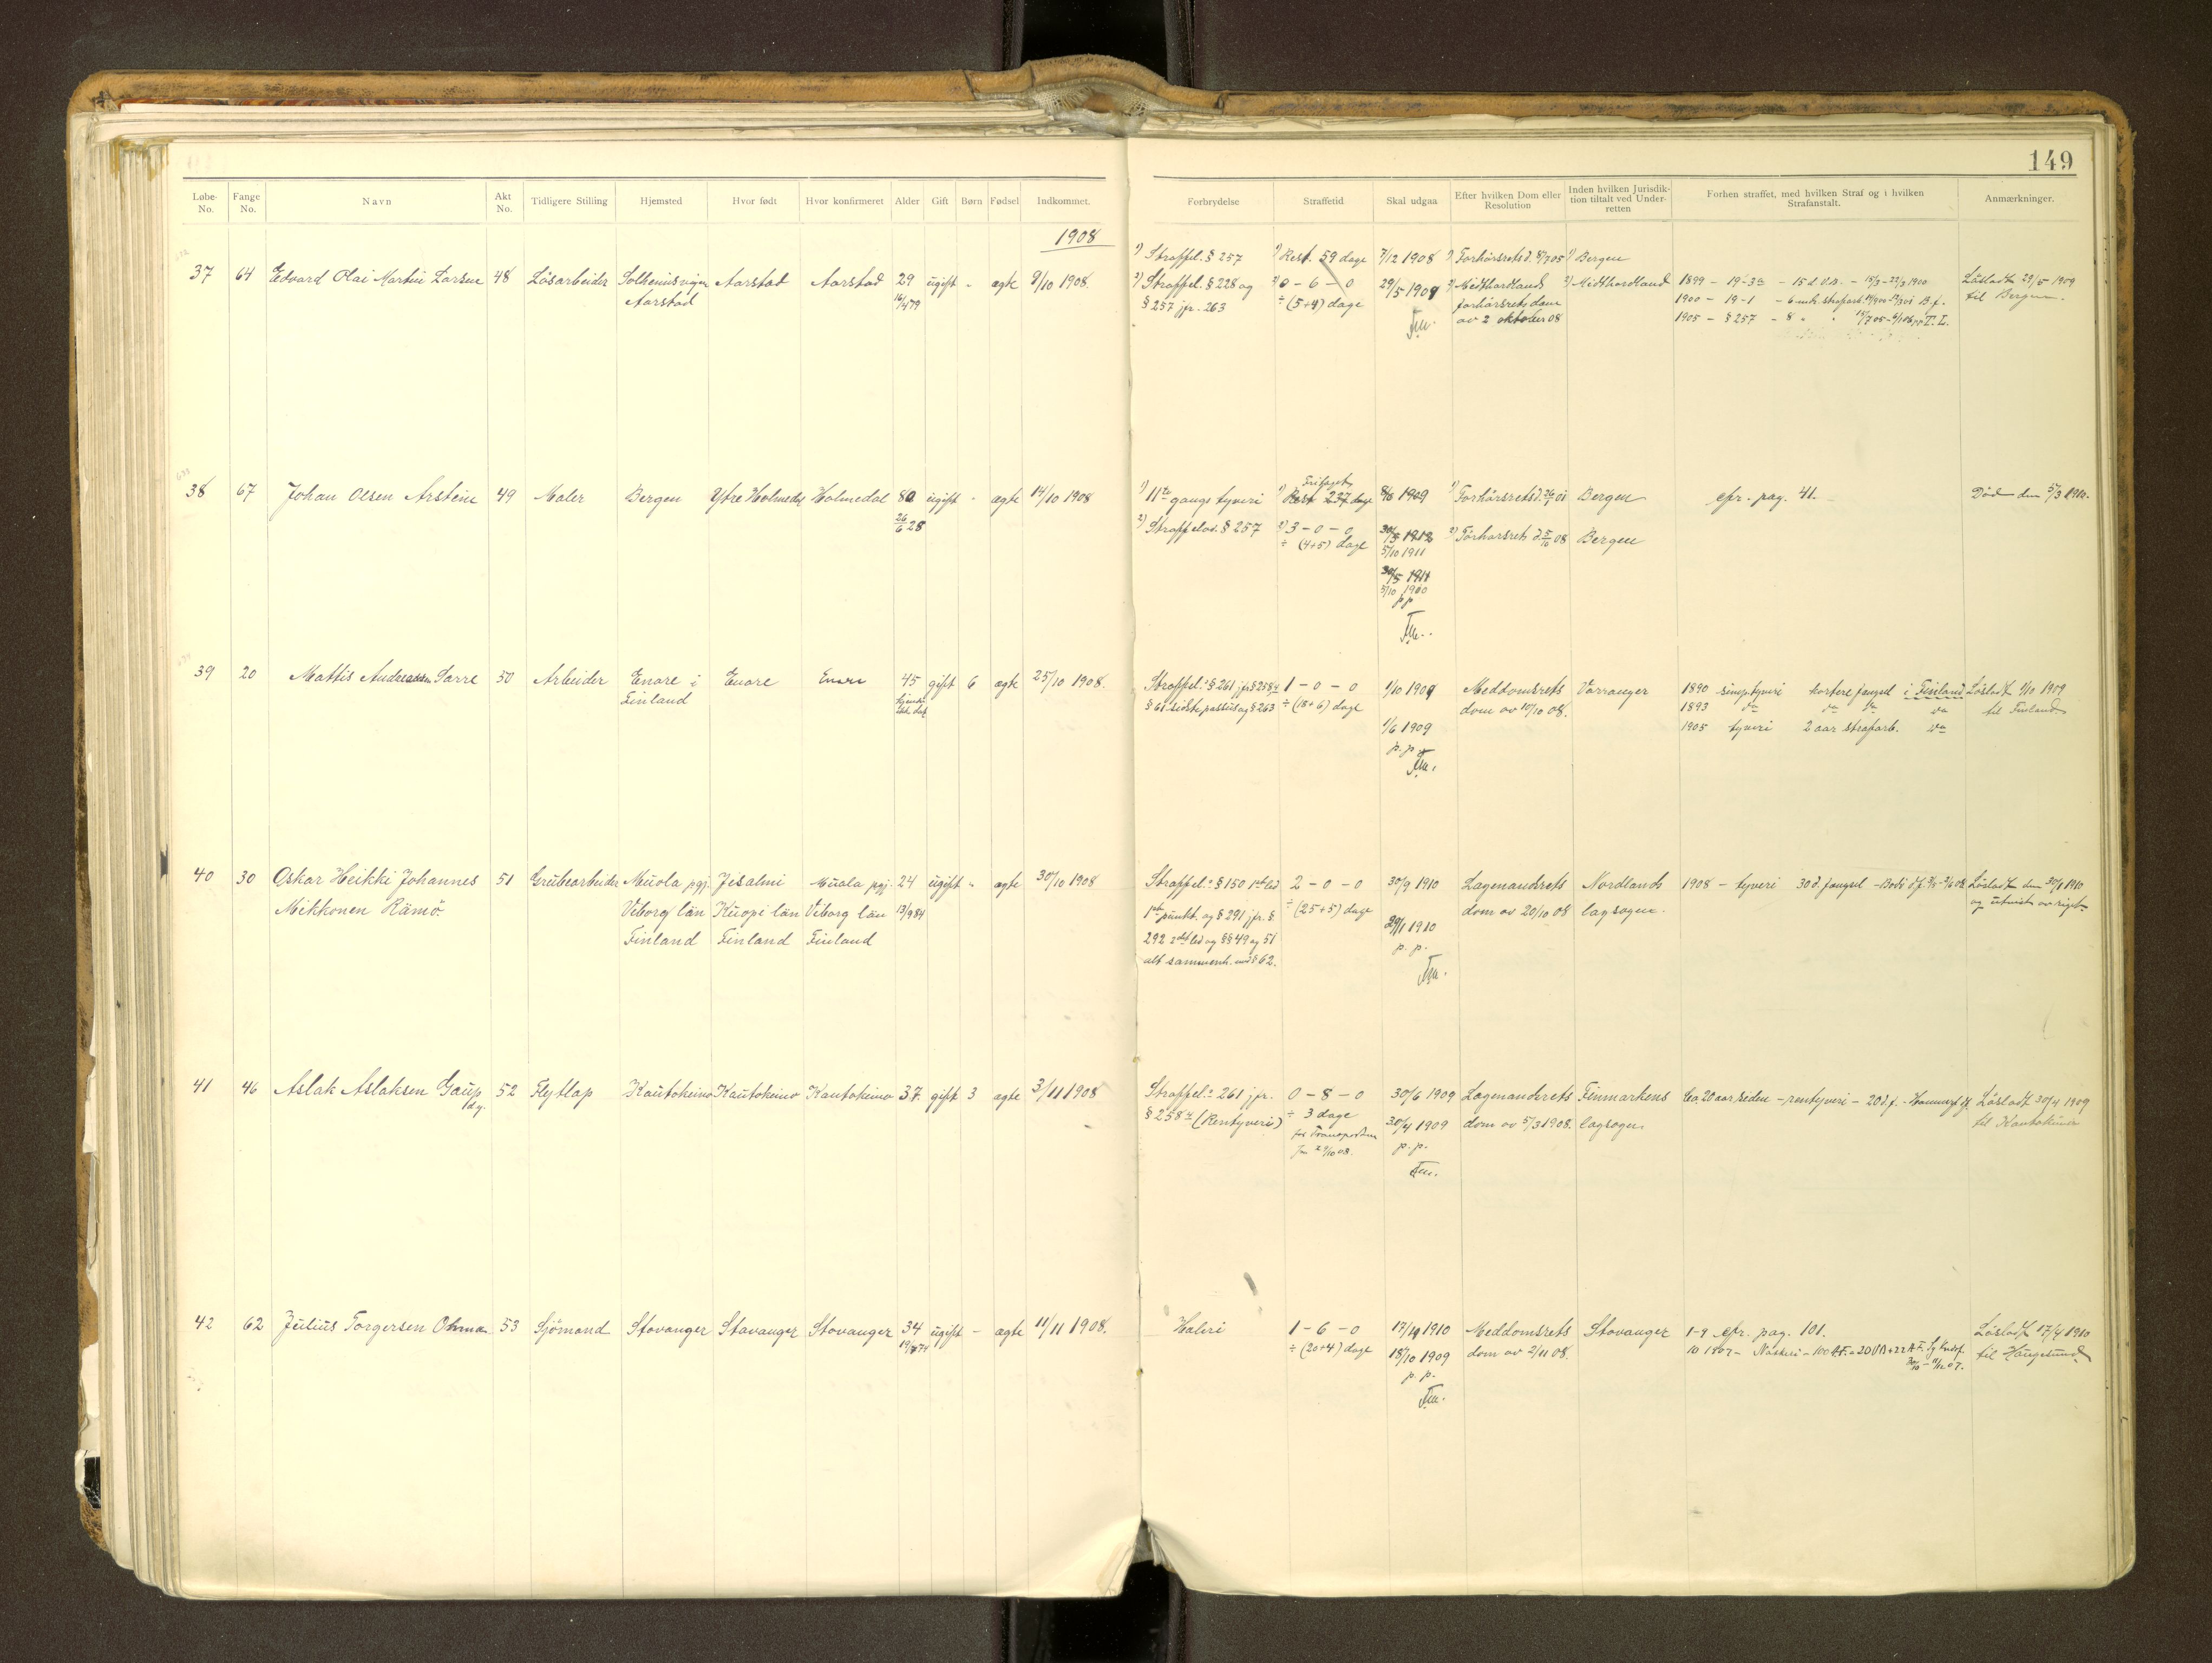 149
Løbe-No. Fange No. Navn Akt No. Tidligere Stilling Hjemsted Hvor født Hvor konfirmeret Alder Gift Børn Fødsel Indkommet. Forbrydelse Straffetid Skal udgaa Efter hvilken Dom eller Resolution Inden hvilken Jurisdiktion tiltalt ved Underretten Forhen straffet, med hvilken Straf og i hvilken Strafanstalt. Anmærkninger.
1908
1) Straffel. § 257 1) Rest. 59 dage 7/12 1908 1) Forhørsrets d. 8/7 05 1) Bergen
37 64 Edvard Olai Martin Larsen 48 Løsarbeider Aarstad Aarstad 29 ugift - ægte 9/10 1908. 2) Straffel. § 228 og 2) 0 - 6 - 0 29/5 1909 2) Midthordlands 2) Midthordland 1899 - 19-3 - 15 d. V.B. Løsladt 29/5 1909
Aarstad 16/4 79 § 257 jfr. 263 ÷ (5+4) dage forhørsrets dom 1900 - 19-1 - 6 mdr. strafarb. B.f. til Bergen.
Fm. av 2 oktober 08 1905 - § 257 - 8 " " T. L.
38 67 Johan Olsen Arstein 49 Maler Bergen Ytre Holmedal Holmedal 80 ugift - ægte 14/10 1908 1) 11te gangs tyveri 1) Rest 237 dage 8/6 1909 1) Forhørsrets d. Bergen cfr. pag. 41. Død den 5/3 1910.
26/6 28 2) Straffelov. § 257 2) 3 - 0 - 0 30/5 1912 2) Forhørsrets d. 5/10 08 Bergen
÷ (4+5) dage 5/10 1911
30/5 1911
5/10 1910
p p
Fm.
39 20 Mattis Andreassen Sarre 50 Arbeider Enare i Enare Enare 45 gift 6 ægte 25/10 1908. Straffel. § 261 jfr § 258 1 - 0 - 0 1/10 1909 Meddomsrets Varranger 1890 simp. tyveri kortere fængsel i Finland Løsladt 1/10 1909
Finland § 61 sidste passus og § 263 ÷ (18+6) dage dom av 10/10 08. 1893 do do do do til Finland
1/6 1909 1905 tyveri 2 aar strafarb. do
p. p.
Fm.
40 30 Oskar Heikki Johannes 51 Grubearbeider Muola pgj. Jisalmi Muola pgj. 24 ugift - ægte 30/10 1908 Straffel. § 150 1ste led 2 - 0 - 0 30/9 1910 Lagmandsrets Nordlands 1908 - tyveri 30 d. fængsel - Bodø Løsladt den 30/1 1910
Mikkonen Rämö. Viborg län Kuopi län Viborg län 13/9 84 1ste punkt. og § 291 jfr. § ÷ (25+5) dage dom av 20/10 08 lagsogn. og utvist av riget
Finland Finland Finland 292 2det led og §§ 49 og 51 29/1 1910
alt sammenh. med § 62. p. p.
Fm.
41 46 Aslak Aslaksen Gaup 52 Flytlap Kautokeino Kautokeino Kautokeino 37 gift 3 ægte 3/11 1908 Straffel. 261 jfr. 0 - 8 - 0 30/6 1909 Lagmandsrets Finmarkens Ca. 20 aar siden - rentyveri - 20 d. f. - Hammerf. Løsladt 30/4 1909
§ 258 (Rentyveri) ÷ 3 dage 30/4 1909 dom av 5/3 1908. lagsogn til Kautokeino
for Transporten p. p.
Fm.
42 62 Julius Torgersen Ohma 53 Sjømand Stavanger Stavanger Stavanger 34 ugift - ægte 11/11 1908. Haleri 1 - 6 - 0 17/4 1910 Meddomsrets Stavanger 1-9 cfr. pag. 101. Løsladt 17/4 1910
÷ (20+4) dage 18/10 1909 dom av 2/11 08. 10 1907 - til Haugesund
p. p.
Fm.